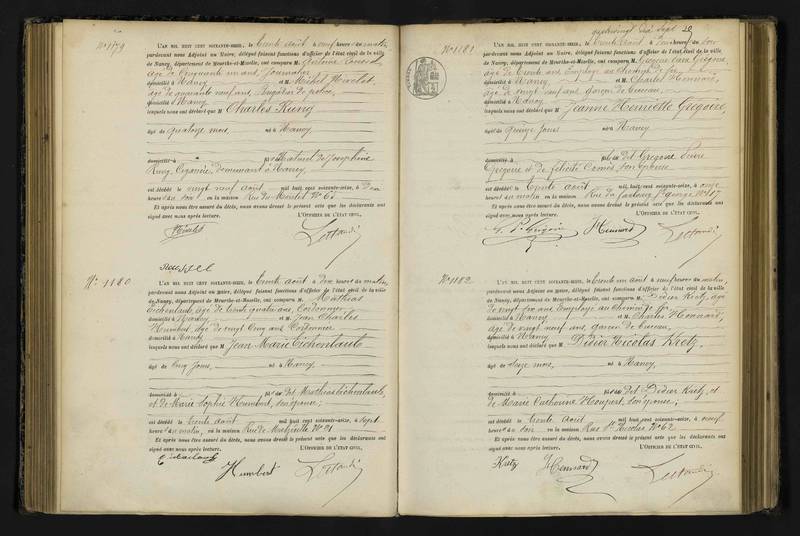 N° 1179
L'AN MIL HUIT CENT SOIXANTE-SEIZE, le trente août à neuf heures du matin
pardevant nous Adjoint au Maire, délégué faisant fonctions d'officier de l'état civil de la ville
de Nancy, département de Meurthe-et-Moselle, ont comparu M.
âgé de Cinquante un ans, Journalier
domicilié à Nancy et M. Michel
âgé de quarante neuf ans, de police,
domicilié à Nancy
lesquels nous ont déclaré que M Charles Kung
âgé de quatorze mois, né à Nancy,
domicilié à fils Naturel de Joséphine
Kung, Cigarière, demeurant à Nancy,
est décédé le vingt neuf août mil huit cent soixante-seize, à
heures du soir en la maison Rue de N° 65
Et après nous être assuré du décès, nous avons dressé le présent acte que les déclarants ont
signé avec nous après lecture. L'OFFICIER DE L'ÉTAT CIVIL,
N° 1180
L'AN MIL HUIT CENT SOIXANTE-SEIZE, le trente août à dix heures du matin,
pardevant nous Adjoint au Maire, délégué faisant fonctions d'officier de l'état civil de la ville
de Nancy, département de Meurthe-et-Moselle, ont comparu M. Mathias
âgé de trente quatre ans, Cordonnier
domicilié à Nancy et M. Jean Charles
Humbert, âgé de vingt cinq ans Cordonnier
domicilié à Nancy
lesquels nous ont déclaré que M Jean Marie
âgé de Cinq jours, né à Nancy,
domicilié à fils de Dit Mathias
et de Marie Sophie Humbert, son épouse;
est décédé le trente août mil huit cent soixante-seize, à sept
heures du matin, en la maison Rue de N° 21
Et après nous être assuré du décès, nous avons dressé le présent acte que les déclarants ont
signé avec nous après lecture. L'OFFICIER DE L'ÉTAT CIVIL,
Humbert
N° 1181
L'AN MIL HUIT CENT SOIXANTE-SEIZE, le trente août à heures du soir
pardevant nous Adjoint au Maire, délégué faisant fonctions d'officier de l'état civil de la ville
de Nancy, département de Meurthe-et-Moselle, ont comparu M. Grégoire
âgé de trente ans, Employé au chemin de fer
domicilié à Nancy et M. Charles Hennard,
âgé de vingt neuf ans, garçon de bureau,
domicilié à Nancy
lesquels nous ont déclaré que M Jeanne Henriette Grégoire,
âgé de quinze jours né à Nancy
domicilié à fils de Dit Grégoire
Grégoire et de Félicité son épouse
est décédé le trente août mil huit cent soixante-seize, à onze
heures du matin en la maison Rue du faubourg St George N°
Et après nous être assuré du décès, nous avons dressé le présent acte que les déclarants ont
signé avec nous après lecture. L'OFFICIER DE L'ÉTAT CIVIL,
Hennard
N° 1182
L'AN MIL HUIT CENT SOIXANTE-SEIZE, le trente un août à neuf heures du matin,
pardevant nous Adjoint au Maire, délégué faisant fonctions d'officier de l'état civil de la ville
de Nancy, département de Meurthe-et-Moselle, ont comparu M. Didier Kretz, âgé
de vingt six ans Employé au Chemin de fer
domicilié à Nancy et M. Charles Hennard,
âgé de vingt neuf ans, garçon de bureau,
domicilié à Nancy
lesquels nous ont déclaré que M Didier Nicolas Kretz
âgé de mois, né à Nancy,
domicilié à fils de Dit Didier Kretz, et
de Marie Catherine son épouse;
est décédé le trente août mil huit cent soixante-seize, à neuf
heures du soir en la maison Rue St Nicolas N° 62
Et après nous être assuré du décès, nous avons dressé le présent acte que les déclarants ont
signé avec nous après lecture. L'OFFICIER DE L'ÉTAT CIVIL,
Kretz Hennard